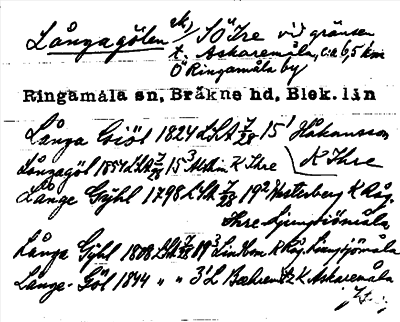 Långagölen sk, SÖ Ire vid gränsen
t. Askaremåla, c:a 6,5 km
Ö Ringamåla by
Ringamåla sn, Bräkne hd, Blek. lin
Långa Giöl 1824 LSA 7/28 15' Håkansson
Långagöl 1854 LSA 7/28 15³ K Ihre K Ihre
Långe Gyhl 1798 LSA 7/28 19² Westerberg K Råg.
Ihre Ljungsjömåla
Långa Gyhl 1808 LSA 7/28 19³ Lindbom K Råg. Ljungsjömåla
Lange-Göl 1844 " " 3' L K Askaremåla